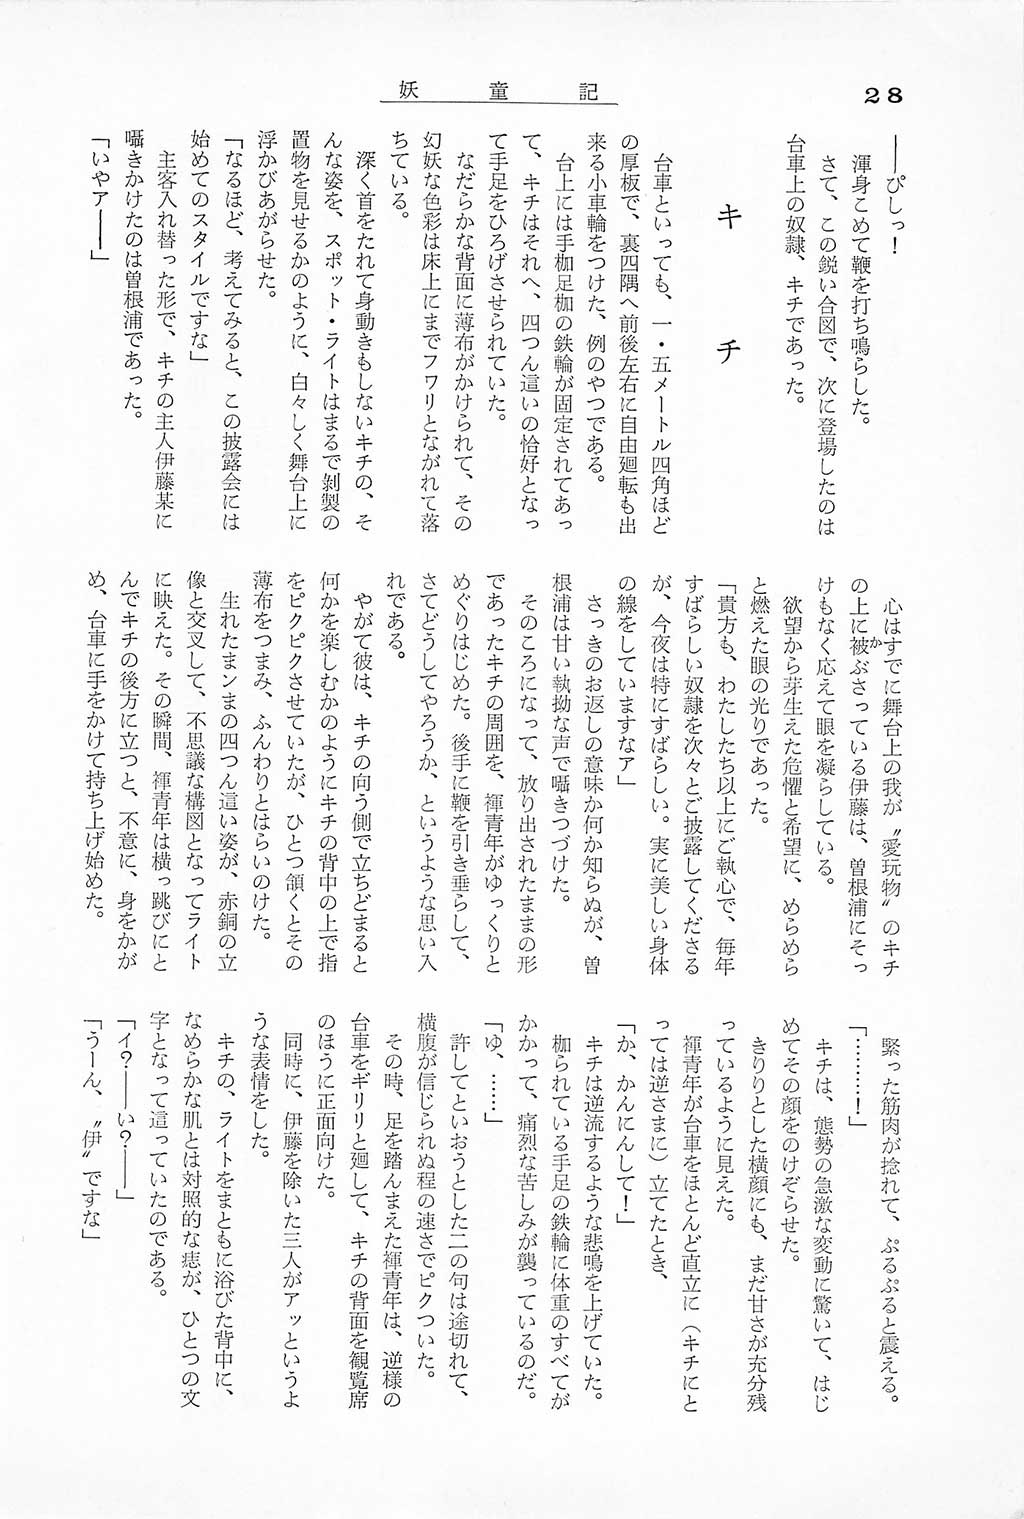 28
妖童記
――ぴしっ！
渾身こめて鞭を打ち鳴らした。
さて、この鋭い合図で、次に登場したのは
台車上の奴隷、キチであった。
キチ
台車といっても、一・五メートル四角ほど
の厚板で、裏四隅へ前後左右に自由廻転も出
来る小車輪をつけた、例のやつである。
台上には手枷足枷の鉄輪が固定されてあっ
て、キチはそれへ、四つん這いの恰好となっ
て手足をひろげさせられていた。
なだらかな背面に薄布がかけられて、その
幻妖な色彩は床上にまでフワリとながれて落
ちている。
深く首をたれて身動きもしないキチの、そ
んな姿を、スポット・ライトはまるで剝製の
置物を見せるかのように、白々しく舞台上に
浮かびあがらせた。
「なるほど、考えてみると、この披露会には
始めてのスタイルですな」
主客入れ替った形で、キチの主人伊藤某に
囁きかけたのは曽根浦であった。
「いやァ――」
心はすでに舞台上の我が〝愛玩物〟のキチ
の上に被（か）ぶさっている伊藤は、曽根浦にそっ
けもなく応えて眼を凝らしている。
欲望から芽生えた危懼と希望に、めらめら
と燃えた眼の光りであった。
「貴方も、わたしたち以上にご執心で、毎年
すばらしい奴隷を次々とご披露してくださる
が、今夜は特にすばらしい。実に美しい身体
の線をしていますなア」
さっきのお返しの意味か何か知らぬが、曽
根浦は甘い執拗な声で囁きつづけた。
そのころになって、放り出されたままの形
であったキチの周囲を、褌青年がゆっくりと
めぐりはじめた。後手に鞭を引き垂らして、
さてどうしてやろうか、というような思い入
れである。
やがて彼は、キチの向う側で立ちどまると
何かを楽しむかのようにキチの背中の上で指
をピクピクさせていたが、ひとつ頷くとその
薄布をつまみ、ふんわりとはらいのけた。
生れたまンまの四つん這い姿が、赤銅の立
像と交叉して、不思議な構図となってライト
に映えた。その瞬間、褌青年は横っ跳びにと
んでキチの後方に立つと、不意に、身をかが
め、台車に手をかけて持ち上げ始めた。
緊った筋肉が捻れて、ぷるぷると震える。
「………！」
キチは、態勢の急激な変動に驚いて、はじ
めてその顔をのけぞらせた。
きりりとした横顔にも、まだ甘さが充分残
っているように見えた。
褌青年が台車をほとんど直立に（キチにと
っては逆さまに）立てたとき、
「か、かんにんして！」
キチは逆流するような悲鳴を上げていた。
枷られている手足の鉄輪に体重のすべてが
かかって、痛烈な苦しみが襲っているのだ。
「ゆ、……」
許してといおうとした二の句は途切れて、
横腹が信じられぬ程の速さでピクついた。
その時、足を踏んまえた褌青年は、逆様の
台車をギリリと廻して、キチの背面を観覧席
のほうに正面向けた。
同時に、伊藤を除いた三人がアッというよ
うな表情をした。
キチの、ライトをまともに浴びた背中に、
なめらかな肌とは対照的な痣が、ひとつの文
字となって這っていたのである。
「イ？――い？――」
「うーん、〝伊〟ですな」